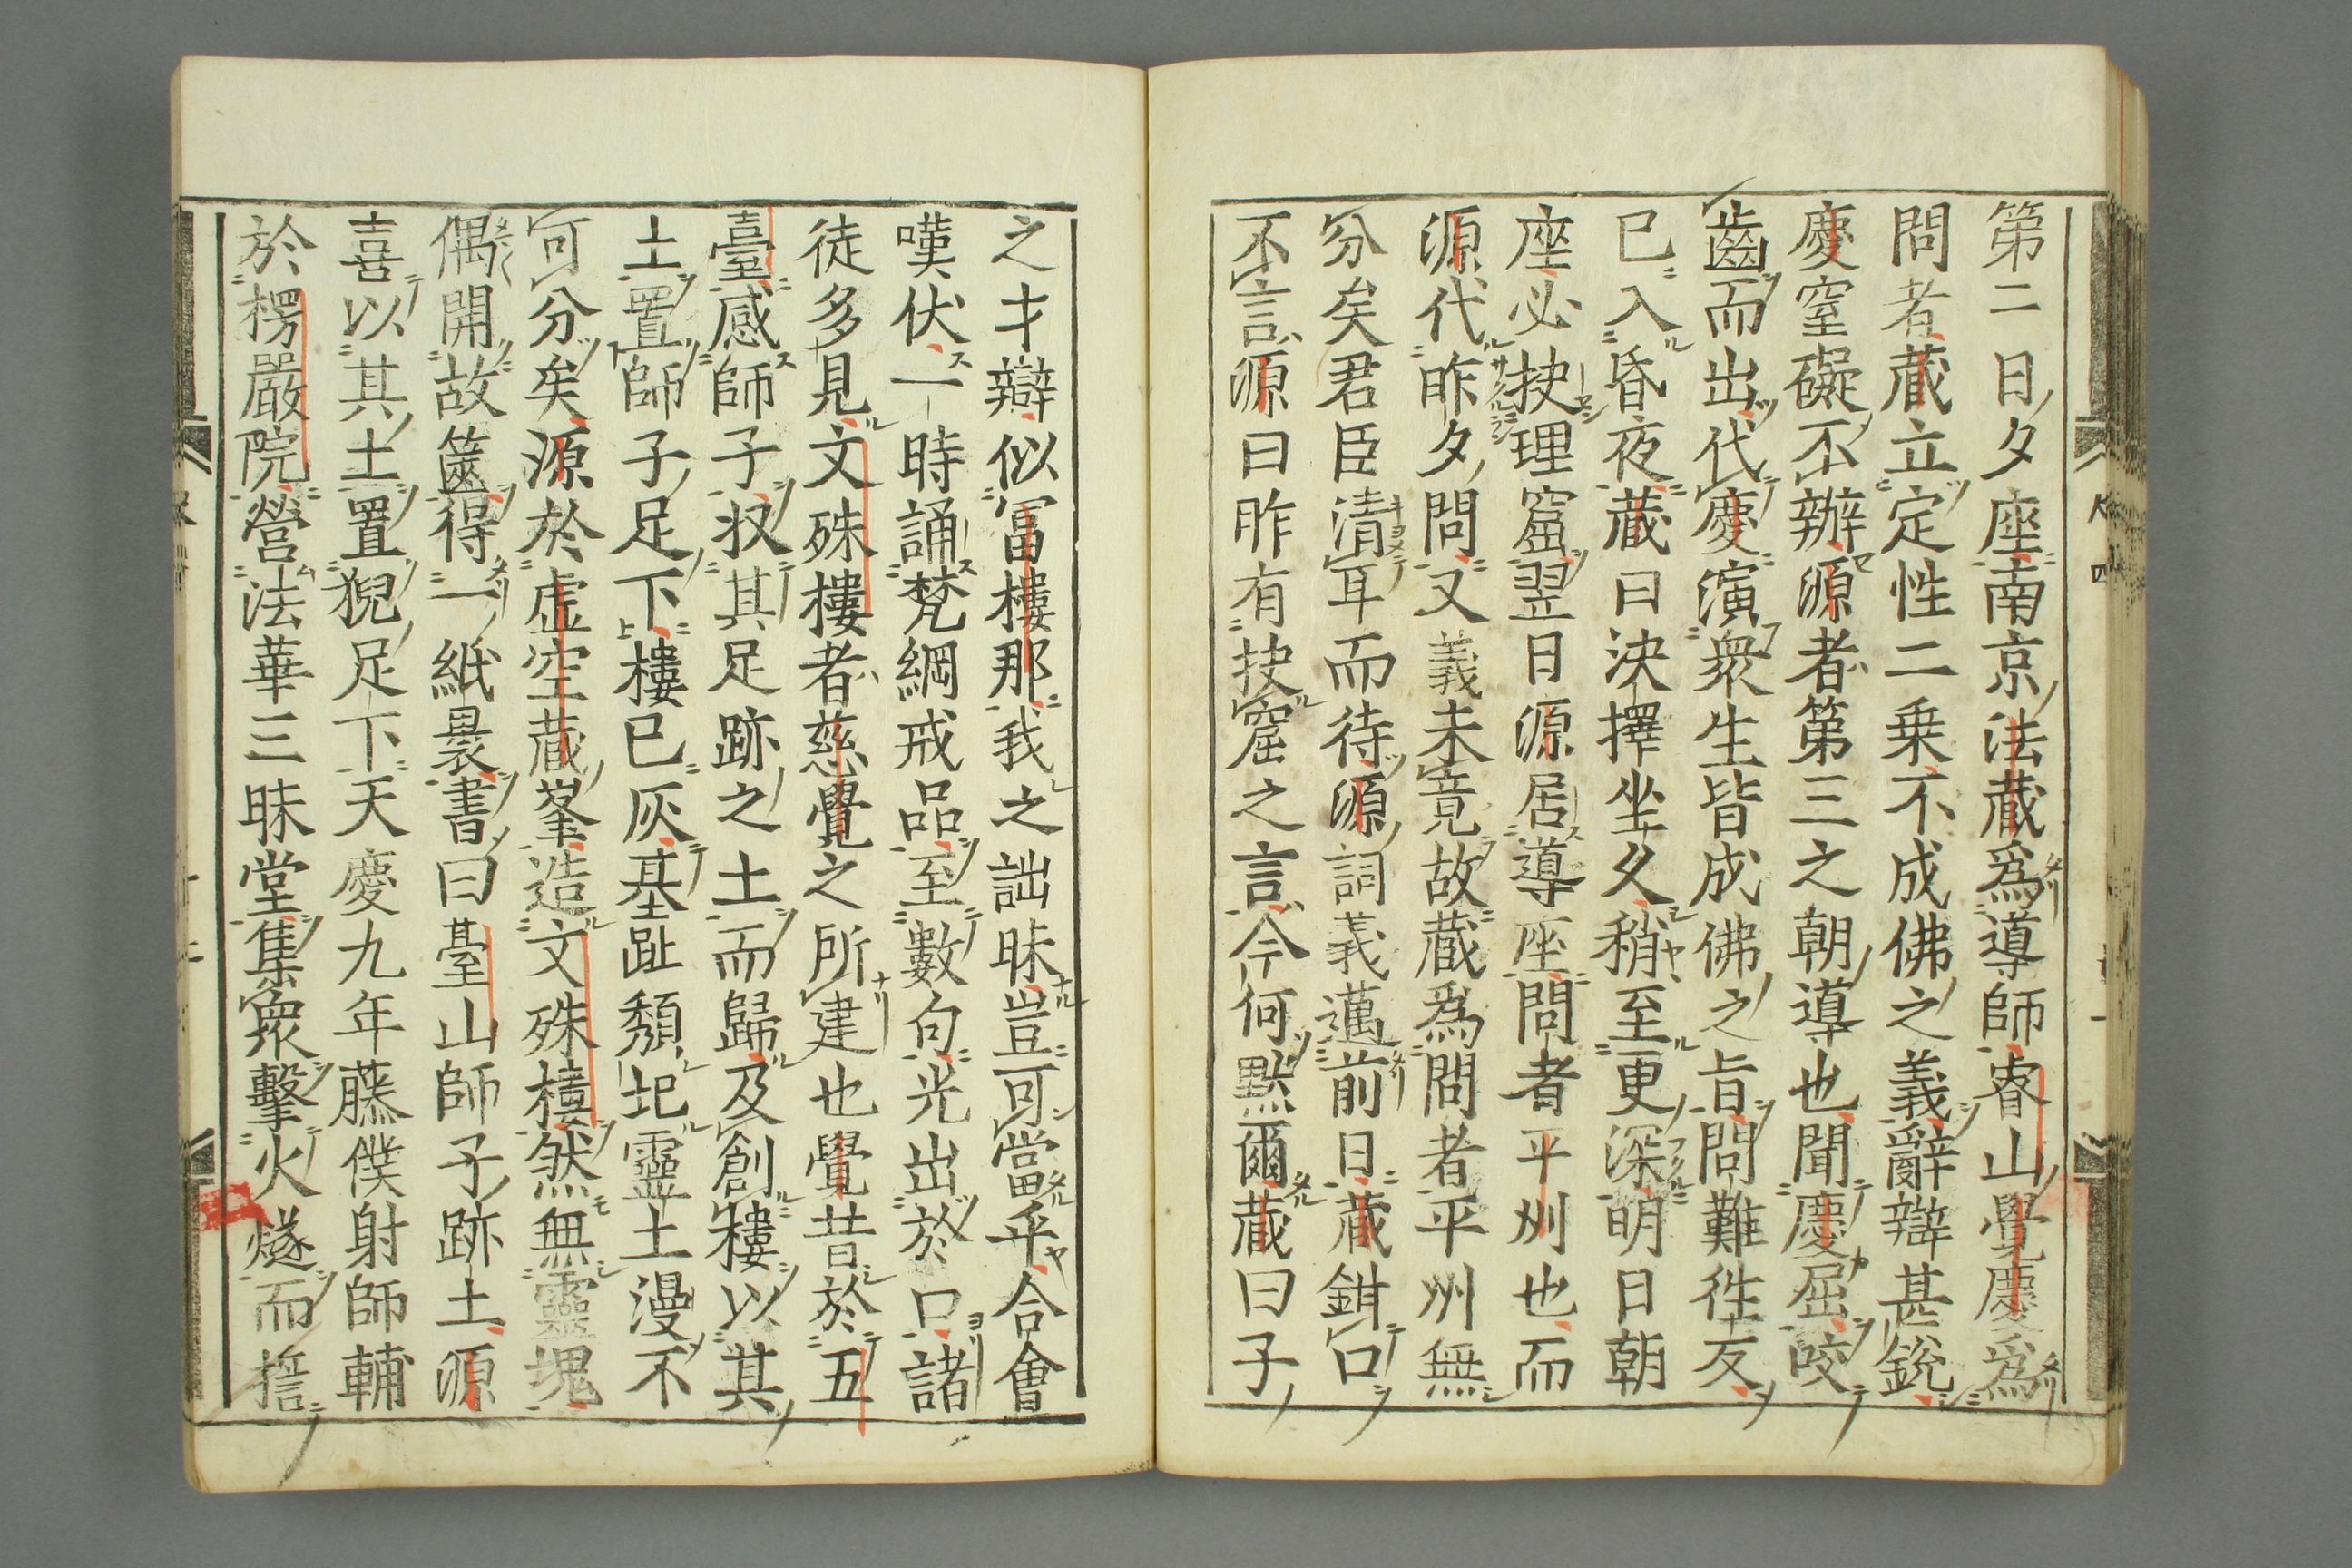 第二日夕座南京法藏爲導師睿山覺慶爲
問者藏立定性二乗不成佛之義辭辯甚銳
慶窒礙不辦源者第三之朝導也聞慶屈咬
齒而出代慶演衆生皆成佛之旨問難徃友
已入昏夜藏曰決擇坐久稍至更深明日朝
座必抉理窟翌日源居導座問者平州也而
源代昨夕問又義未竟故藏爲問者平州無
分矣君臣清耳而待源詞義邁前日藏鉗口
不言源曰昨有抉窟之言今何黙爾藏曰子
之才辯似冨樓那我之詘昧豈可當乎合會
嘆伏一時誦梵綱戒品至數句光出於口諸
徒多見文殊樓者慈覺之所建也覺昔於五
臺感師子収其足跡之土而歸及創樓以其
土置師子足下樓已灰基趾頽圮靈土漫不
可分矣源於虚空藏峯造文殊樓然無靈塊
偶開故篋得一紙褁書曰臺山師子跡土源
喜以其土置猊足下天慶九年藤僕射師輔
於楞嚴院營法華三昧堂集衆擊火燧而誓